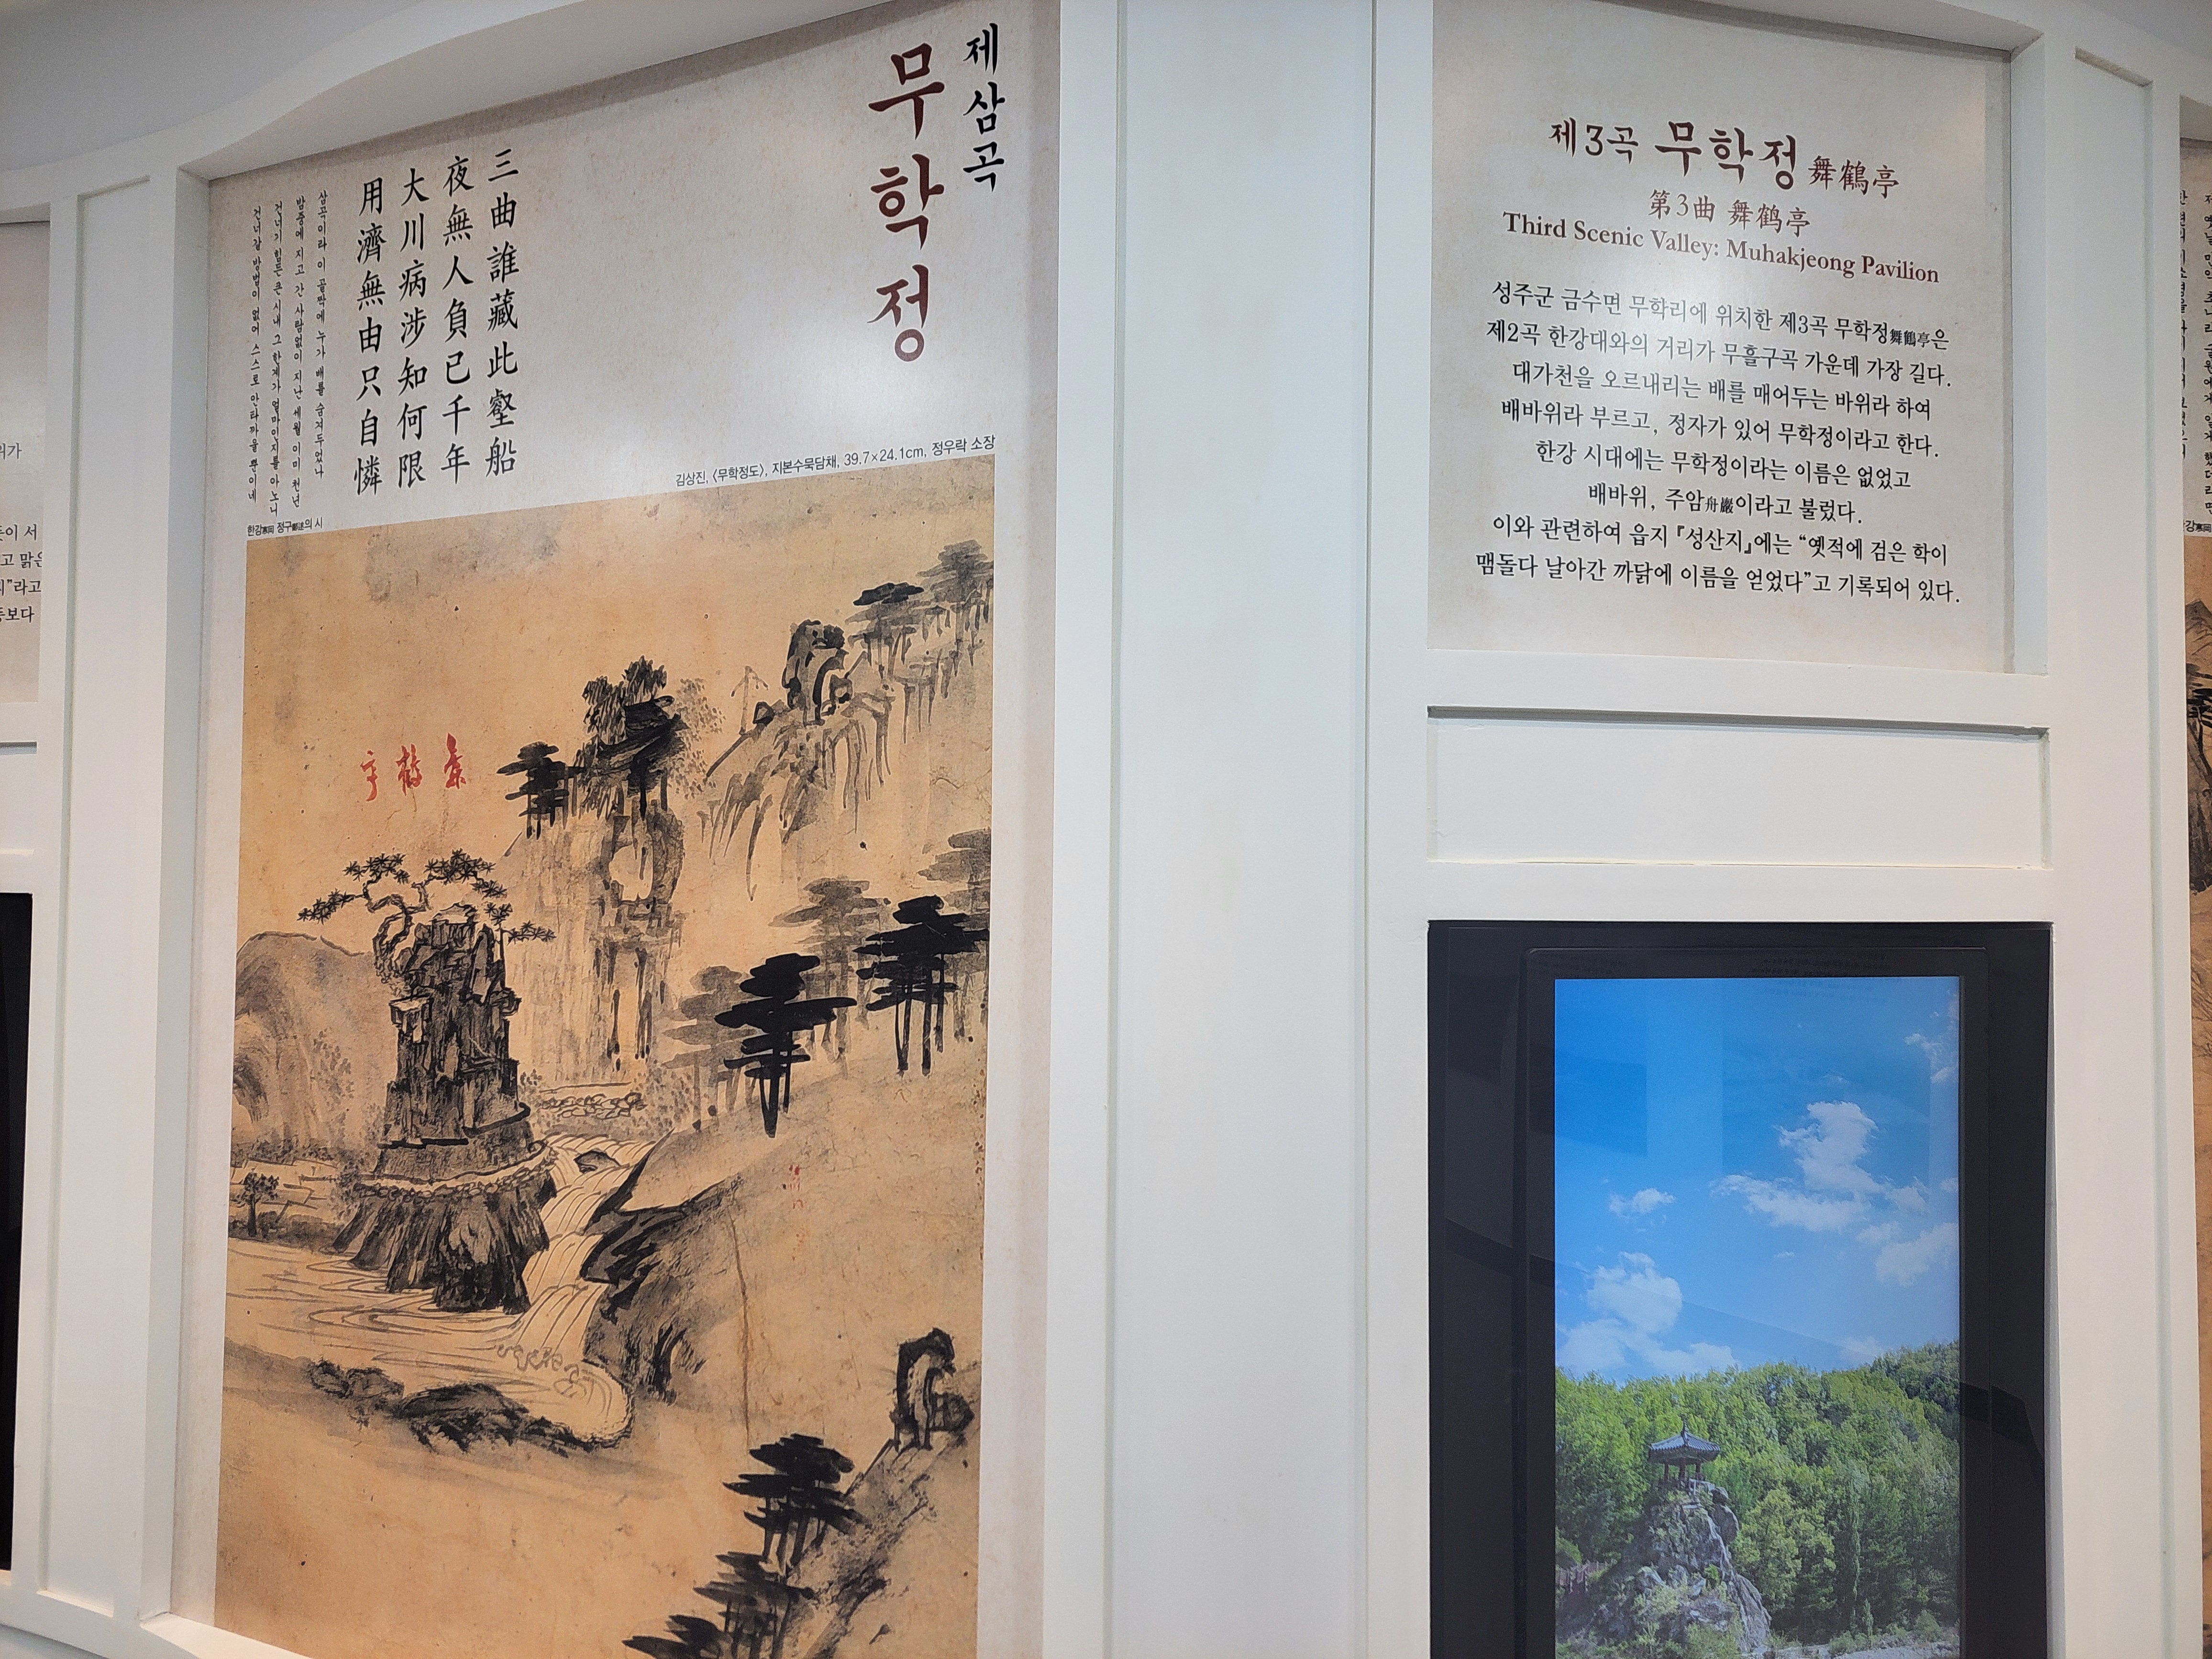 제삼곡
무학정
三曲誰藏此壑船
夜無人負已千年
大川病涉知何限
用濟無由只自憐
삼곡이라 이 골짝에 누가 배를 숨겨두었나
밤중에 지고 간 사람없이 지난 세월 이미 천년
건너기 힘든 큰 시내 그 한계가 얼마인지를 아노니
건너갈 방법이 없어 스스로 안타까울 뿐이네
한강寒岡 정구鄭逑의 시
김상진, 〈무학정도〉, 지본수묵담채, 39.7×24.1cm, 정우락 소장
제3곡 무학정 舞鶴亭
第3曲 舞鹤亭
Third Scenic Valley: Muhakjeong Pavilion
성주군 금수면 무학리에 위치한 제3곡 무학정舞鶴亭은
제2곡 한강대와의 거리가 무흘구곡 가운데 가장 길다.
대가천을 오르내리는 배를 매어두는 바위라 하여
배바위라 부르고, 정자가 있어 무학정이라고 한다.
한강 시대에는 무학정이라는 이름은 없었고
배바위, 주암舟巖이라고 불렀다.
이와 관련하여 읍지 『성산지』에는 “옛적에 검은 학이
맴돌다 날아간 까닭에 이름을 얻었다”고 기록되어 있다.